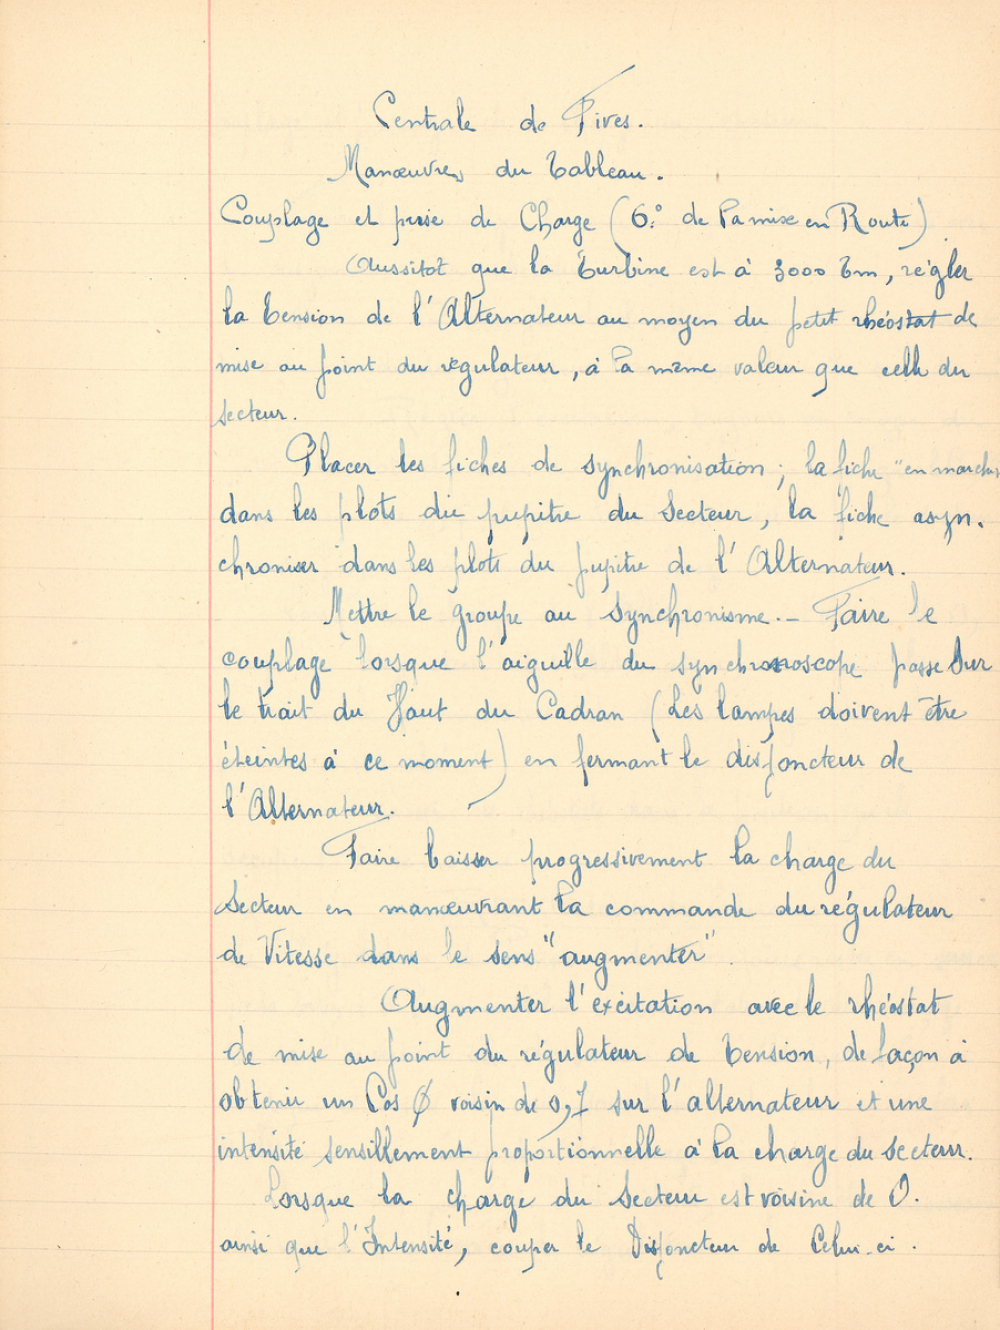 Centrale de Fives.
Manœuvres du Tableau.
Couplage et prise de Charge (6.° de la mise en Route)
Aussitôt que la Turbine est à 3000 Tm, régler
la tension de l'Alternateur au moyen du petit rhéostat de
mise au point du régulateur, à la même valeur que celle du
secteur.
Placer les fiches de synchronisation ; la fiche "en marche"
dans les plots du pupitre du Secteur, la fiche asyn.
chroniser dans les plots du pupitre de l'Alternateur.
Mettre le groupe au synchronisme. - Faire le
couplage lorsque l'aiguille du synchronoscope passe sur
le trait du Haut du Cadran (Les lampes doivent être
éteintes à ce moment) en fermant le disjoncteur de
l'Alternateur.
Faire baisser progressivement la charge du
Secteur en manœuvrant la commande du régulateur
de Vitesse dans le sens "augmenter".
Augmenter l'excitation avec le rhéostat
de mise au point du régulateur de tension, de façon à
obtenir un Cos Ø voisin de 0,7 sur l'alternateur et une
intensité sensillement proportionnelle à la charge du secteur.
Lorsque la charge du Secteur est voisine de 0.
ainsi que l'Intensité, couper le Disjoncteur de Celui-ci.